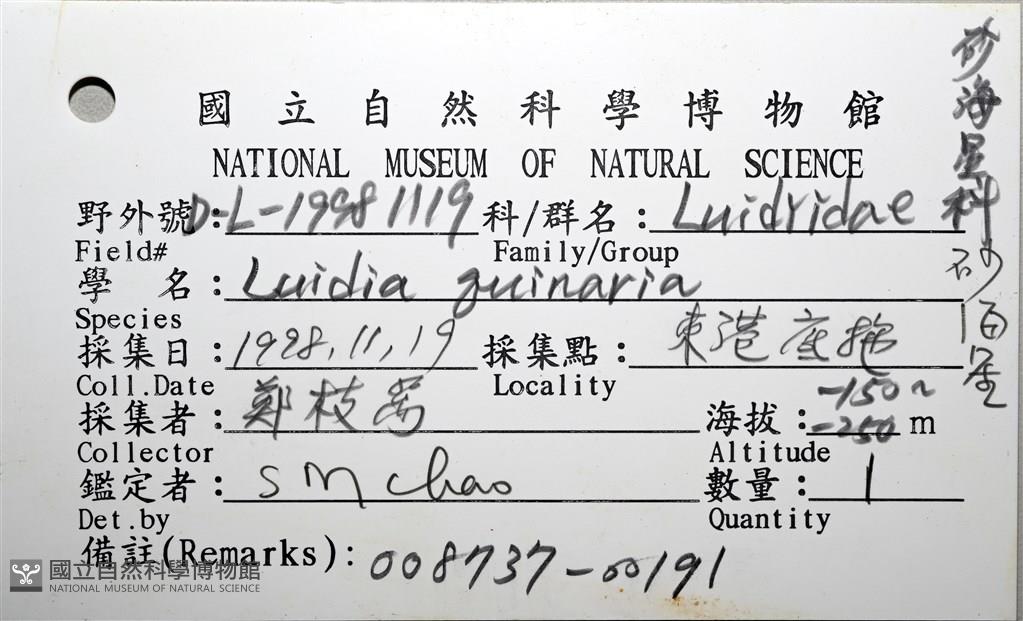 國立自然科學博物館
NATIONAL MUSEUM OF NATURAL SCIENCE
野外號: D-L-19981119 科/群名: Luidridae
Field# Family/Group
學名: Luidia quinaria
Species
採集日: 1998.11.19 採集點: 東港底拖
Coll.Date Locality
-150~
採集者: 鄭枝 海拔: -250 m
Collector Altitude
鑑定者: S M Chao 數量: 1
Det.by Quantity
備註(Remarks): 008737-00191
砂海星科
砂
國立自然科學博物館
NATIONAL MUSEUM OF NATURAL SCIENCE